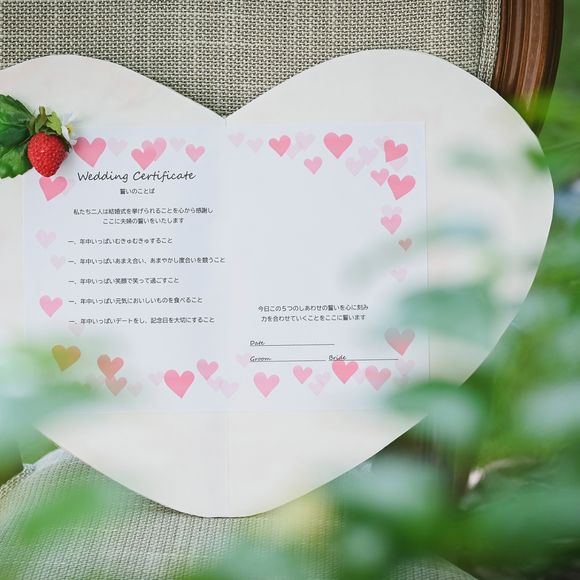 Wedding Certificate
誓いのことば
私たち二人は結婚式を挙げられることを心から感謝し
ここに夫婦の誓いをいたします
一、年中いっぱいむぎゅむぎゅすること
一、年中いっぱいあまえ合い、あまやかし度合いを競うこと
一、年中いっぱい笑顔で笑って過ごすこと
一、年中いっぱい元気においしいものを食べること
一、年中いっぱいデートをし、記念日を大切にすること
今日この５つのしあわせの誓いを心に刻み
力を合わせていくことをここに誓います
Date
Groom Bride